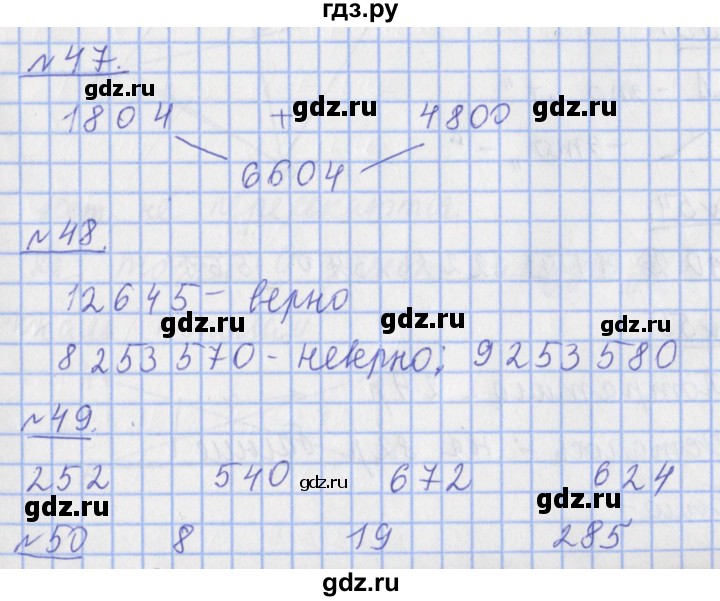 гдз.ру
№47.
gdz.ru gdz.ru gdz.ru
1804 + 4800
6604
№48.
12645 - верно
gdz.ru gdz.ru gdz.ru
8253570 - неверно; 9253580
№49.
252 540 672 624
gdz.ru gdz.ru gdz.ru gdz.ru
№50 8 19 285
gdz.ru